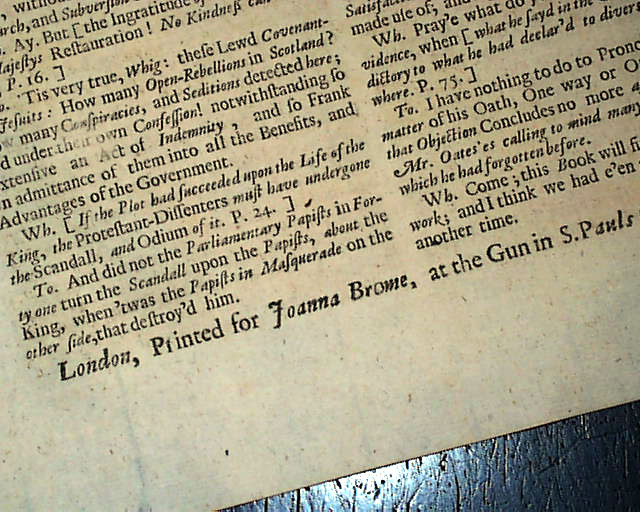 , witho
urch, and Subversion
. Ay. But [ the Ingratitude of
Majestys Restauration! No Kindness can
. P. 16. ]
o. 'Tis very true, Whig: these Lewd Covenant-
Jesuits: How many Open-Rebellions in Scotland?
w many Conspiracies, and Seditions detected here;
d under their own Confession! notwithstanding so
xtensive an Act of Indemnity, and so Frank
n admittance of them into all the Benefits, and
Advantages of the Government.
Wh. [ If the Plot had succeeded upon the Life of the
King, the Protestant-Dissenters must have undergone
the Scandall, and Odium of it. P. 24. ]
To. And did not the Parliamentary Papists in For-
ty one turn the Scandall upon the Papists, about the
King, when 'twas the Papists in Masquerade on the
other side, that destroy'd him.
Satisfac
made use of; and
Wh. Pray'e what do y
vidence, when [ what he sayd in the
dictory to what he had declar'd to divers
where. P. 75. ]
To. I have nothing to do to Prono
matter of his Oath, One way or O
that Objection Concludes no more a
Mr. Oates'es calling to mind many
which he had forgotten before.
Wh. Come; this Book will fi
work; and I think we had e'en
another time.
London, Printed for Joanna Brome, at the Gun in S. Pauls